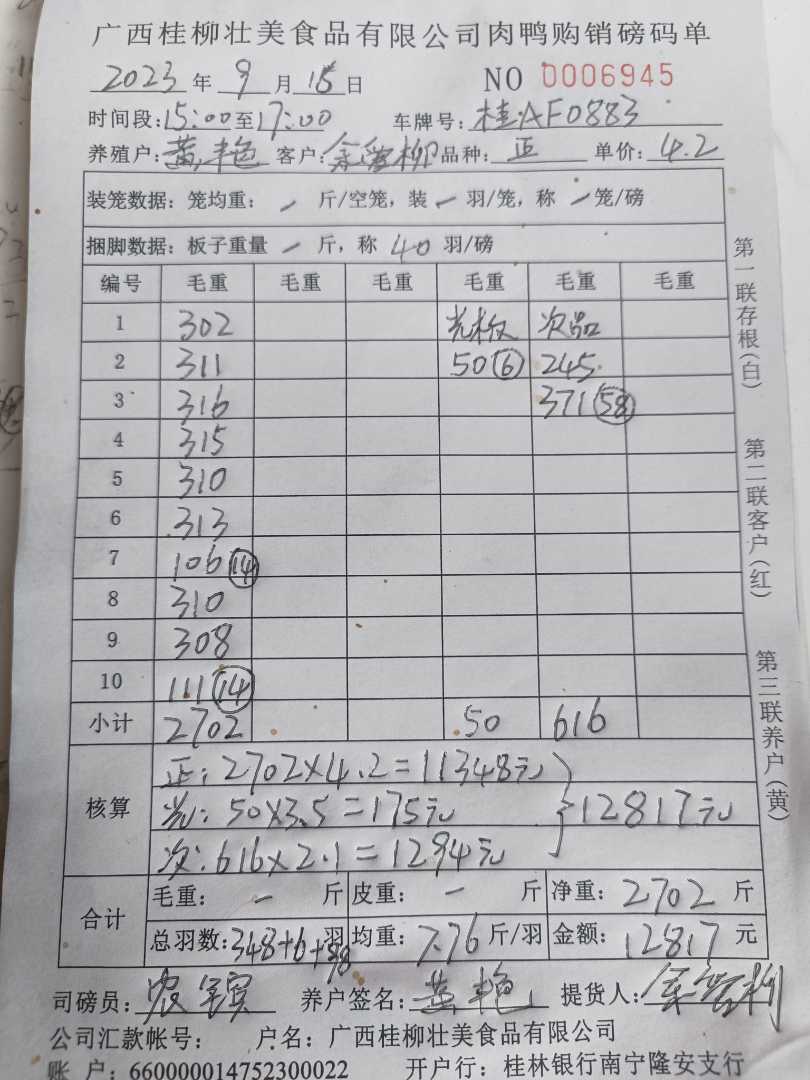 广西桂柳壮美食品有限公司肉鸭购销磅码单
2023年9月15日 NO 0006945
时间段:15:00至17:00 车牌号:桂AF0883
养殖户:黄艳 客户: 品种:正 单价:4.2
装笼数据:笼均重: - 斤/空笼,装 - 羽/笼,称 - 笼/磅
捆脚数据:板子重量 - 斤,称 40 羽/磅
编号 毛重 毛重 毛重 毛重 毛重 毛重
1 302 光板 次品
2 311 50(6) 245
3 316 371(58)
4 315
5 310
6 313
7 106(14)
8 310
9 308
10 111(14)
小计 2702 50 616
核算 正:2702×4.2=11348元
光:50×3.5=175元 }12817元
次:616×2.1=1294元
合计 毛重: - 斤 皮重: - 斤 净重:2702斤
总羽数:348+6+98羽 均重:7.76斤/羽 金额:12817元
司磅员: 养户签名:黄艳 提货人:
公司汇款帐号: 户名:广西桂柳壮美食品有限公司
账 户:660000014752300022 开户行:桂林银行南宁隆安支行
第一联存根(白) 第二联客户(红) 第三联养户(黄)